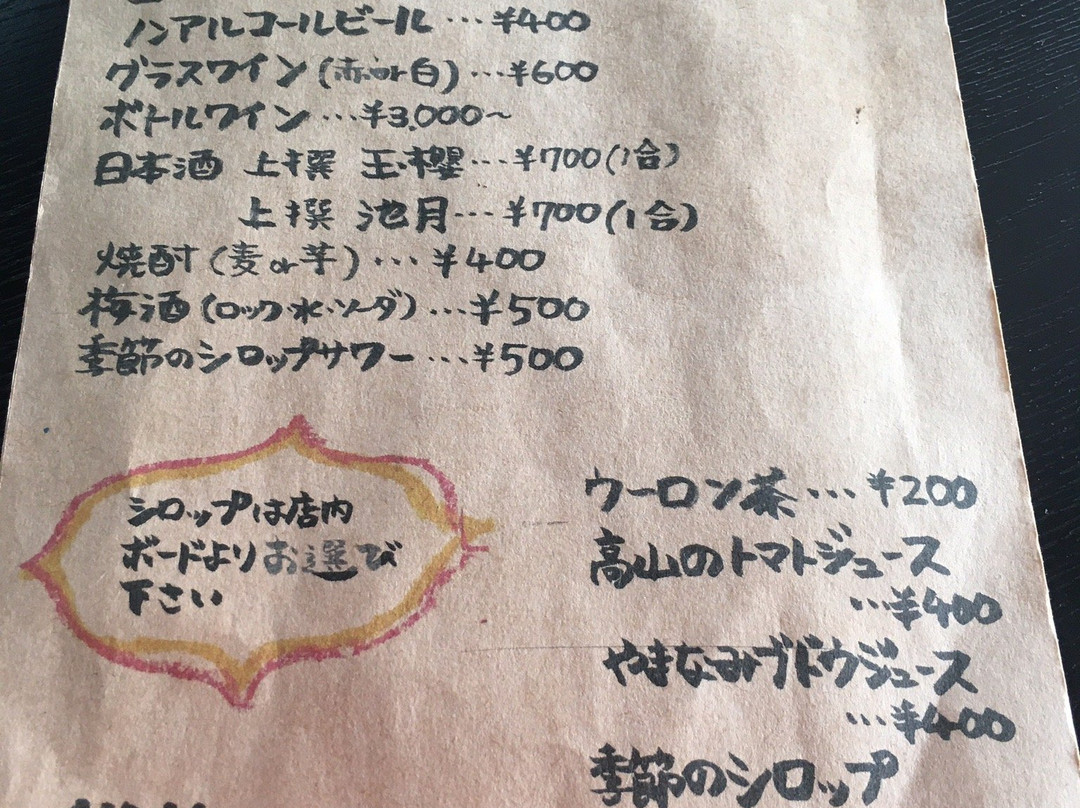 ノンアルコールビール…¥400
グラスワイン(赤or白)…¥600
ボトルワイン…¥3,000〜
日本酒 上撰 玉櫻…¥700(1合)
上撰 池月…¥700(1合)
焼酎(麦or芋)…¥400
梅酒(ロック・水・ソーダ)…¥500
季節のシロップサワー…¥500
シロップは店内
ボードよりお選び
下さい
ウーロン茶…¥200
高山のトマトジュース
…¥400
やきなみブドウジュース
…¥400
季節のシロップ